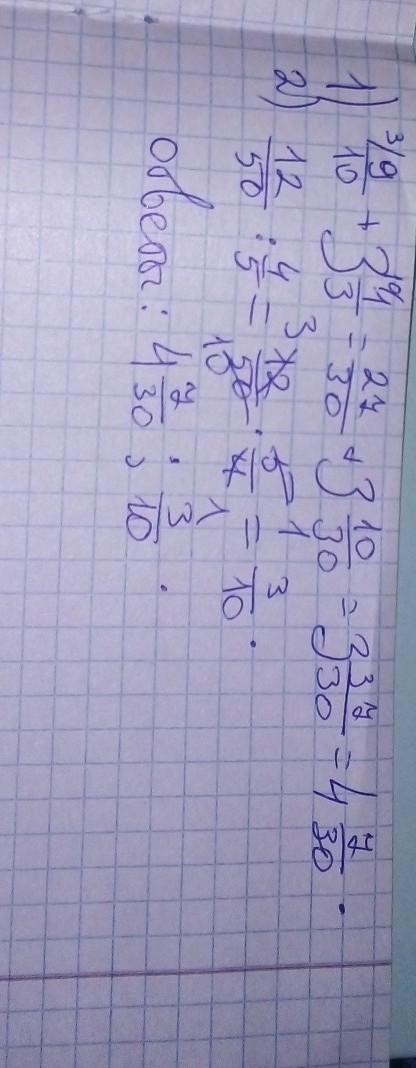 1) ³/9/10 + 3 1/3 = 27/30 + 3 10/30 = 3 37/30 = 4 7/30.
2) 12/50 : 4/5 = 12/50 · 5/4 = 3/10.
Ответ: 4 7/30; 3/10.